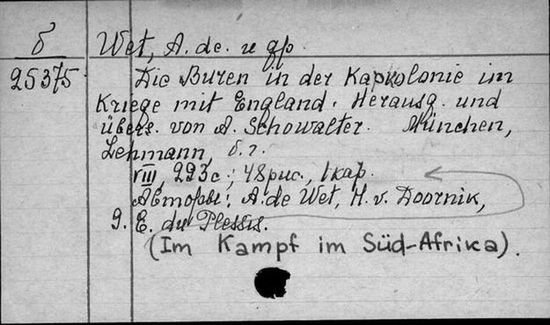 б
25375
Wet, A. de. и др.
Die Buren in der Kapkolonie im
Kriege mit England. Herausg. und
übers. von A. Schowalter. München,
Lehmann, б. г.
VIII, 223 с.; 48 рис., 1 кар.
Авторы: A. de Wet, H. v. Doornik,
G. E. du Plessis.
(Im Kampf im Süd-Afrika).